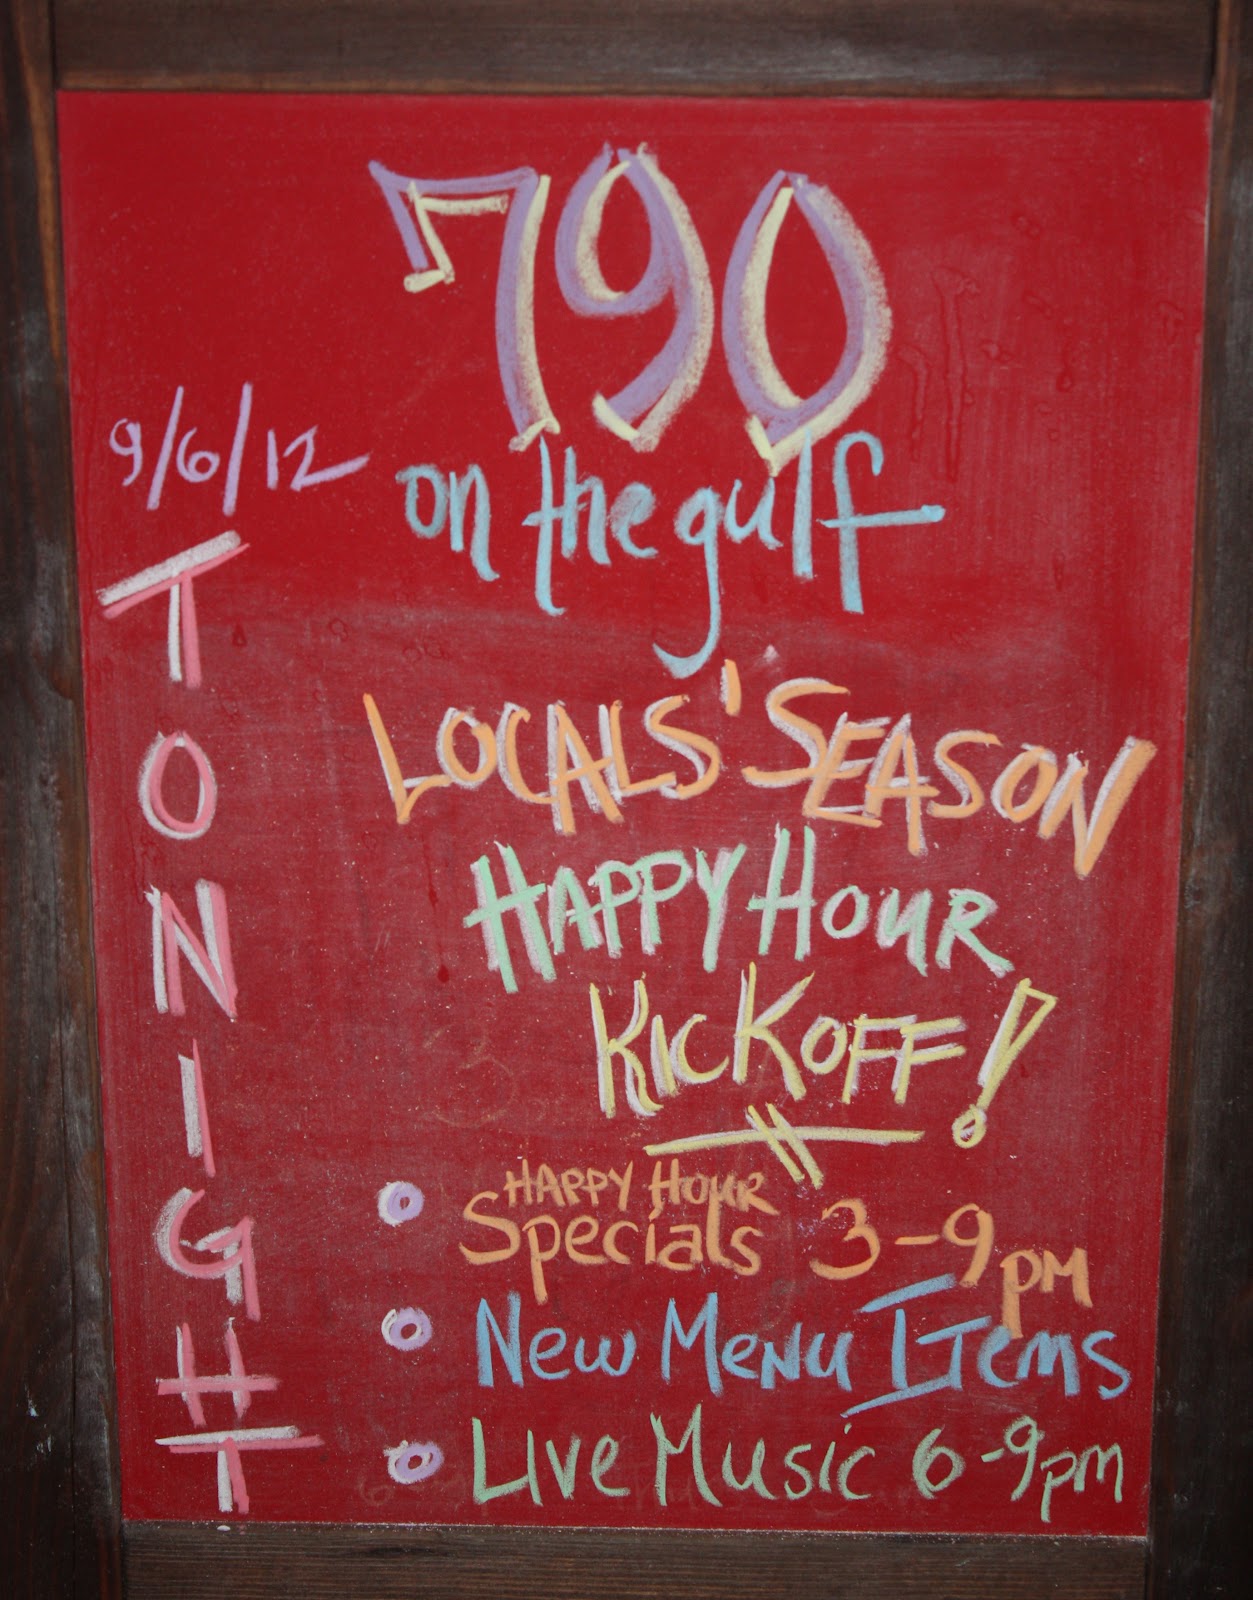 790
on the gulf
9/6/12
TONIGHT
LOCALS' SEASON
HAPPY HOUR
KICKOFF!
HAPPY HOUR
Specials 3-9pm
New Menu Items
Live Music 6-9pm